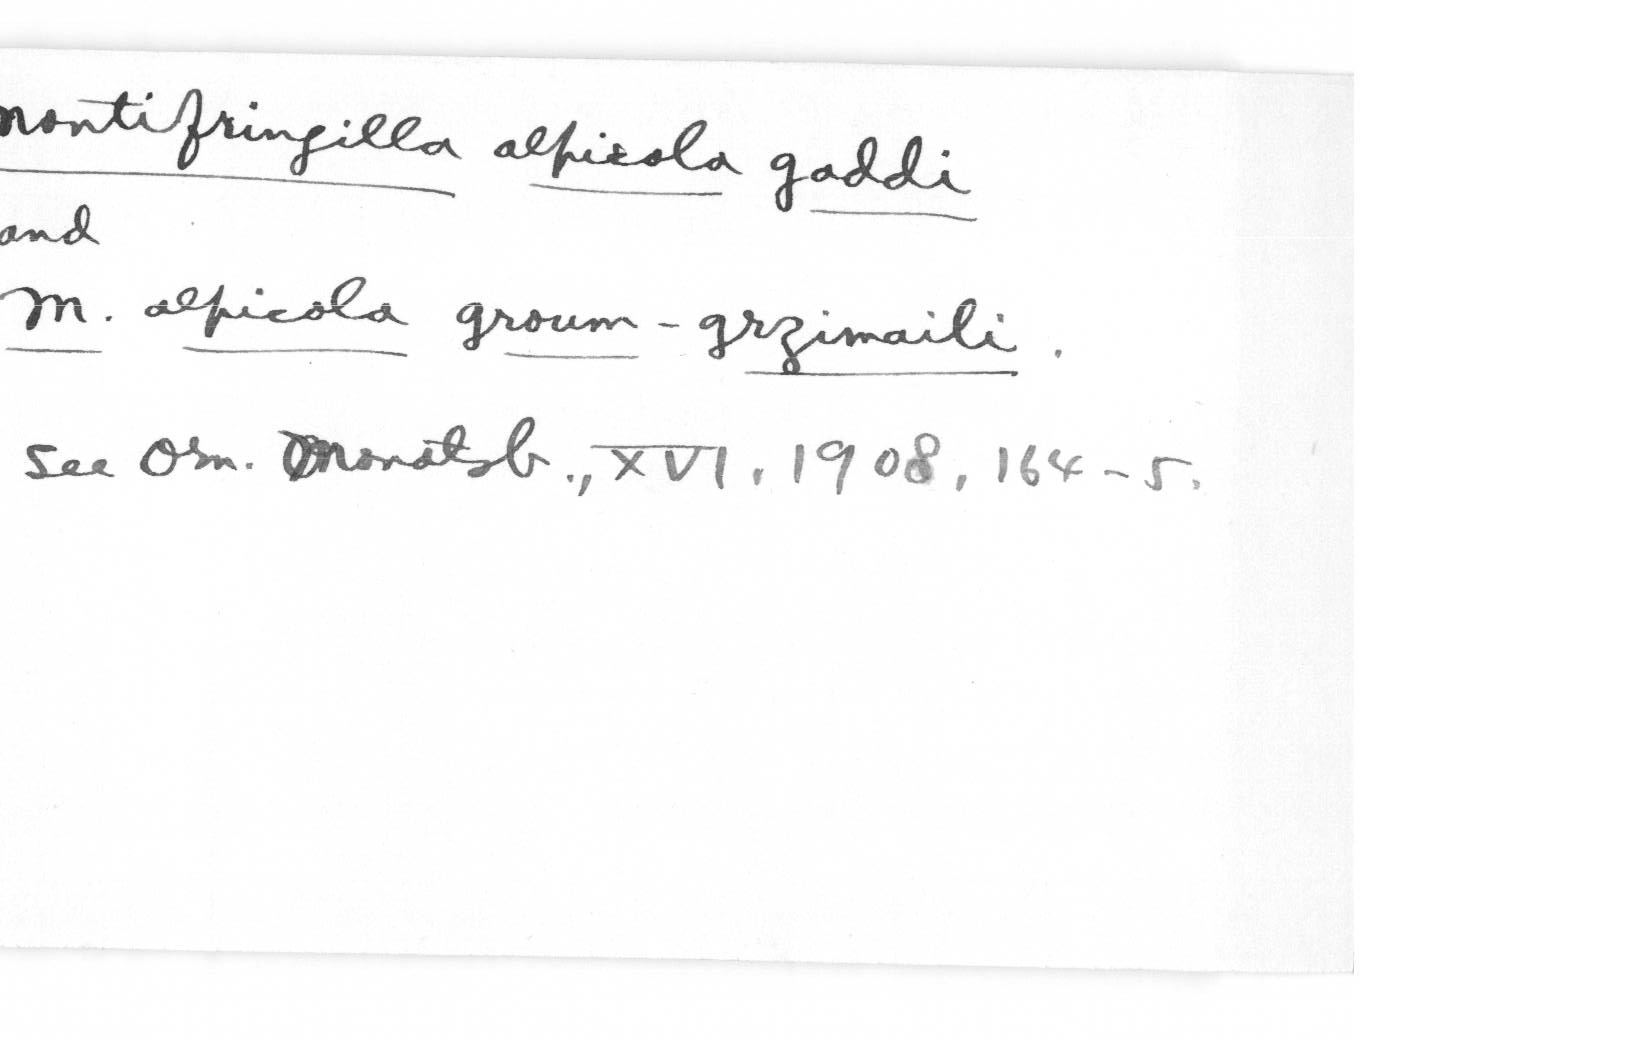 montifringilla alpicola gaddi
and
M. alpicola groum-grzimaili.
See Orn. Monatsb., XVI, 1908, 164-5.